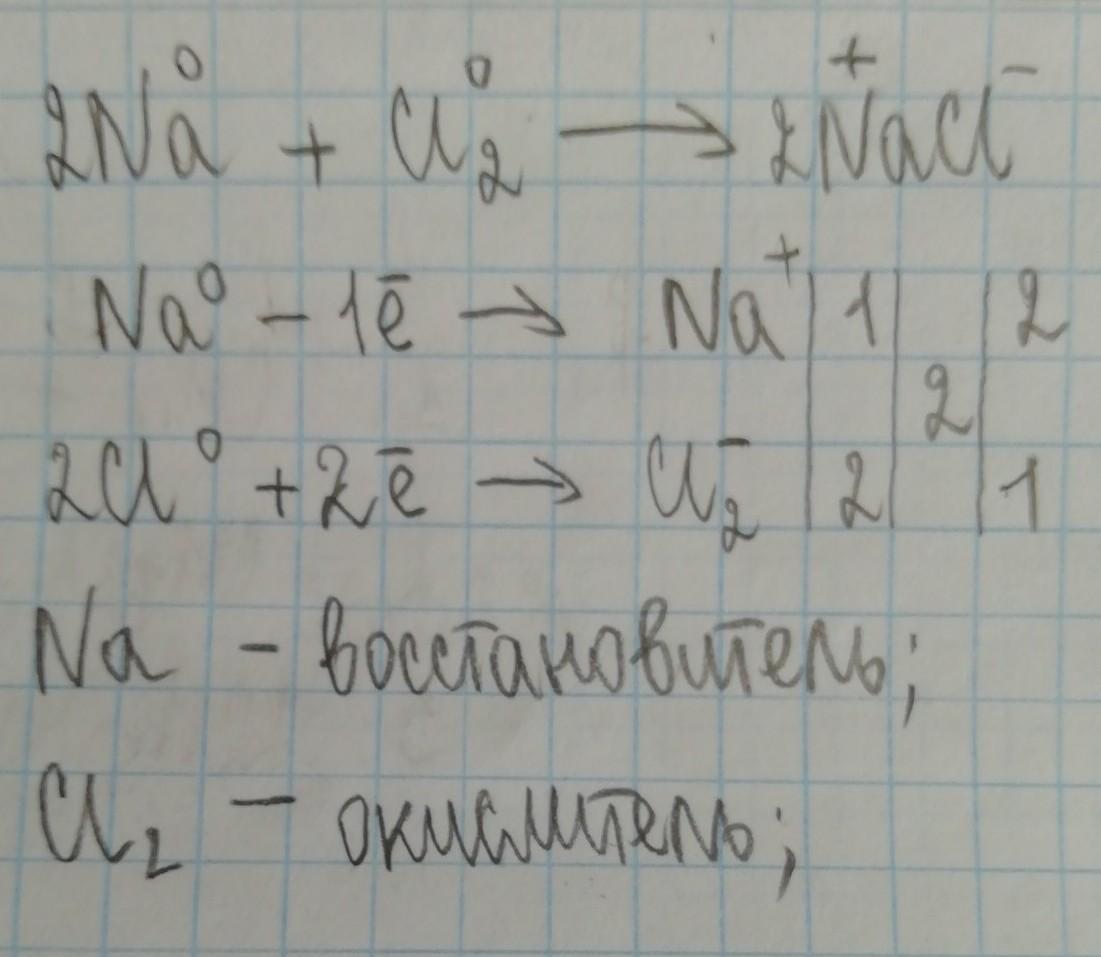 2Na⁰ + Cl₂⁰ → 2Na⁺Cl⁻
Na⁰ − 1ē → Na⁺ | 1 | | 2
2
2Cl⁰ + 2ē → Cl₂⁻ | 2 | | 1
Na - восстановитель;
Cl₂ - окислитель;